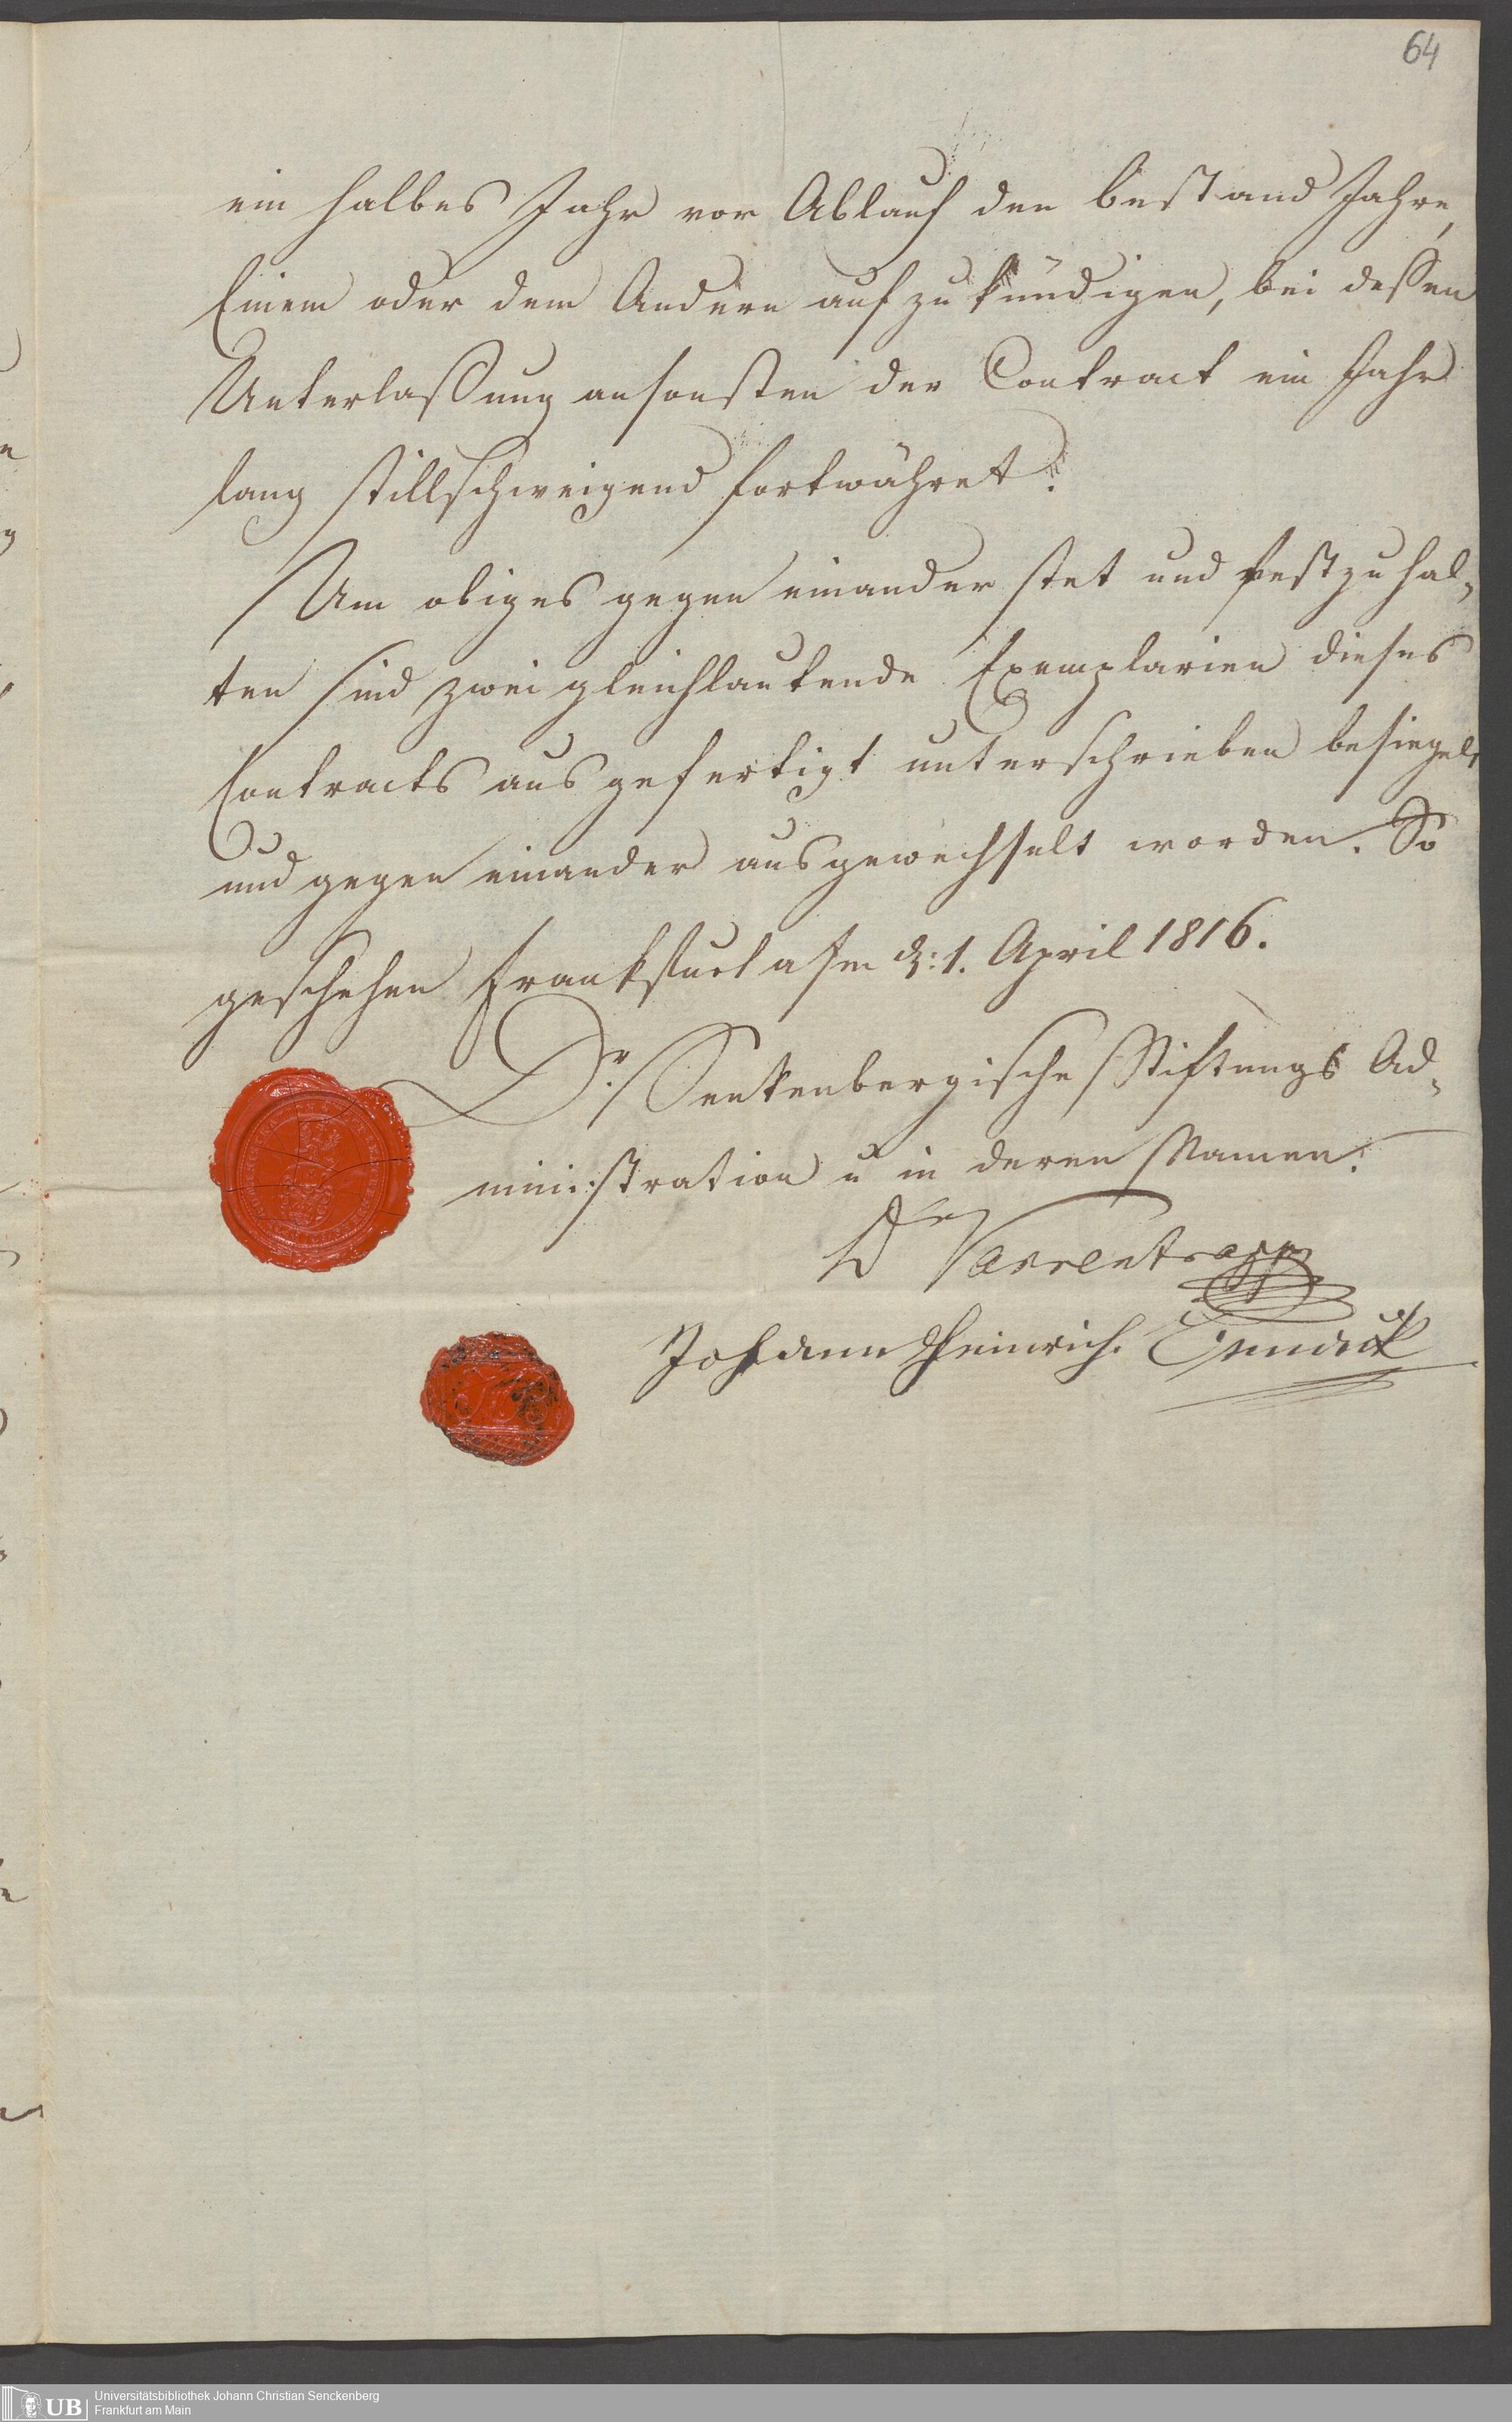 64
ein halbes Jahr vor Ablauf der bestand Jahre,
Einem oder dem Andern aufzukündigen, bei dessen
Unterlaßung ansonsten der Contract ein Jahr
lang stillschweigend fortwähret.
Um obiges gegen einander stet und festzuhal-
ten sind zwei gleichlautende Exemplarien dieses
Contracts ausgefertigt unterschrieben besiegelt
und gegen einander ausgewechselt worden. So
geschehen Frankfurt a/m d: 1. April 1816.
Dr. Senkenbergische Stiftungs Ad-
ministration u in deren Namen.
Dr Varrentrapp
Johann Heinrich
UB
Universitätsbibliothek Johann Christian Senckenberg
Frankfurt am Main